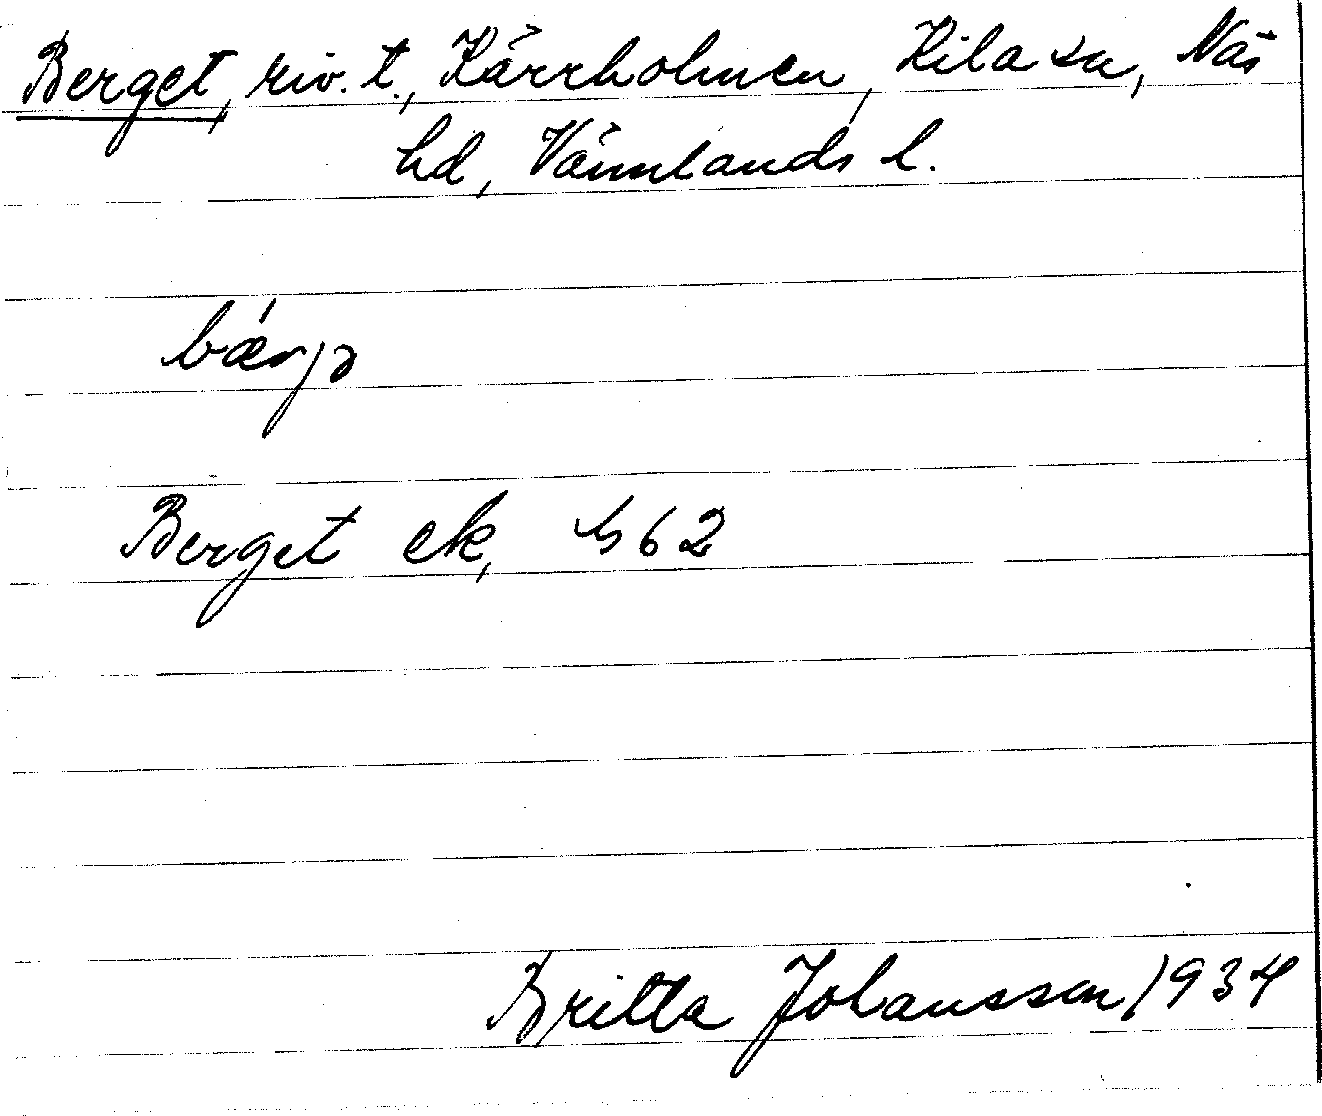 Berget, riv. t., Kärrholmen, Kila sn, Näs
hd, Värmlands l.
bærjə
Berget ek, 62
Britta Johansson 1934